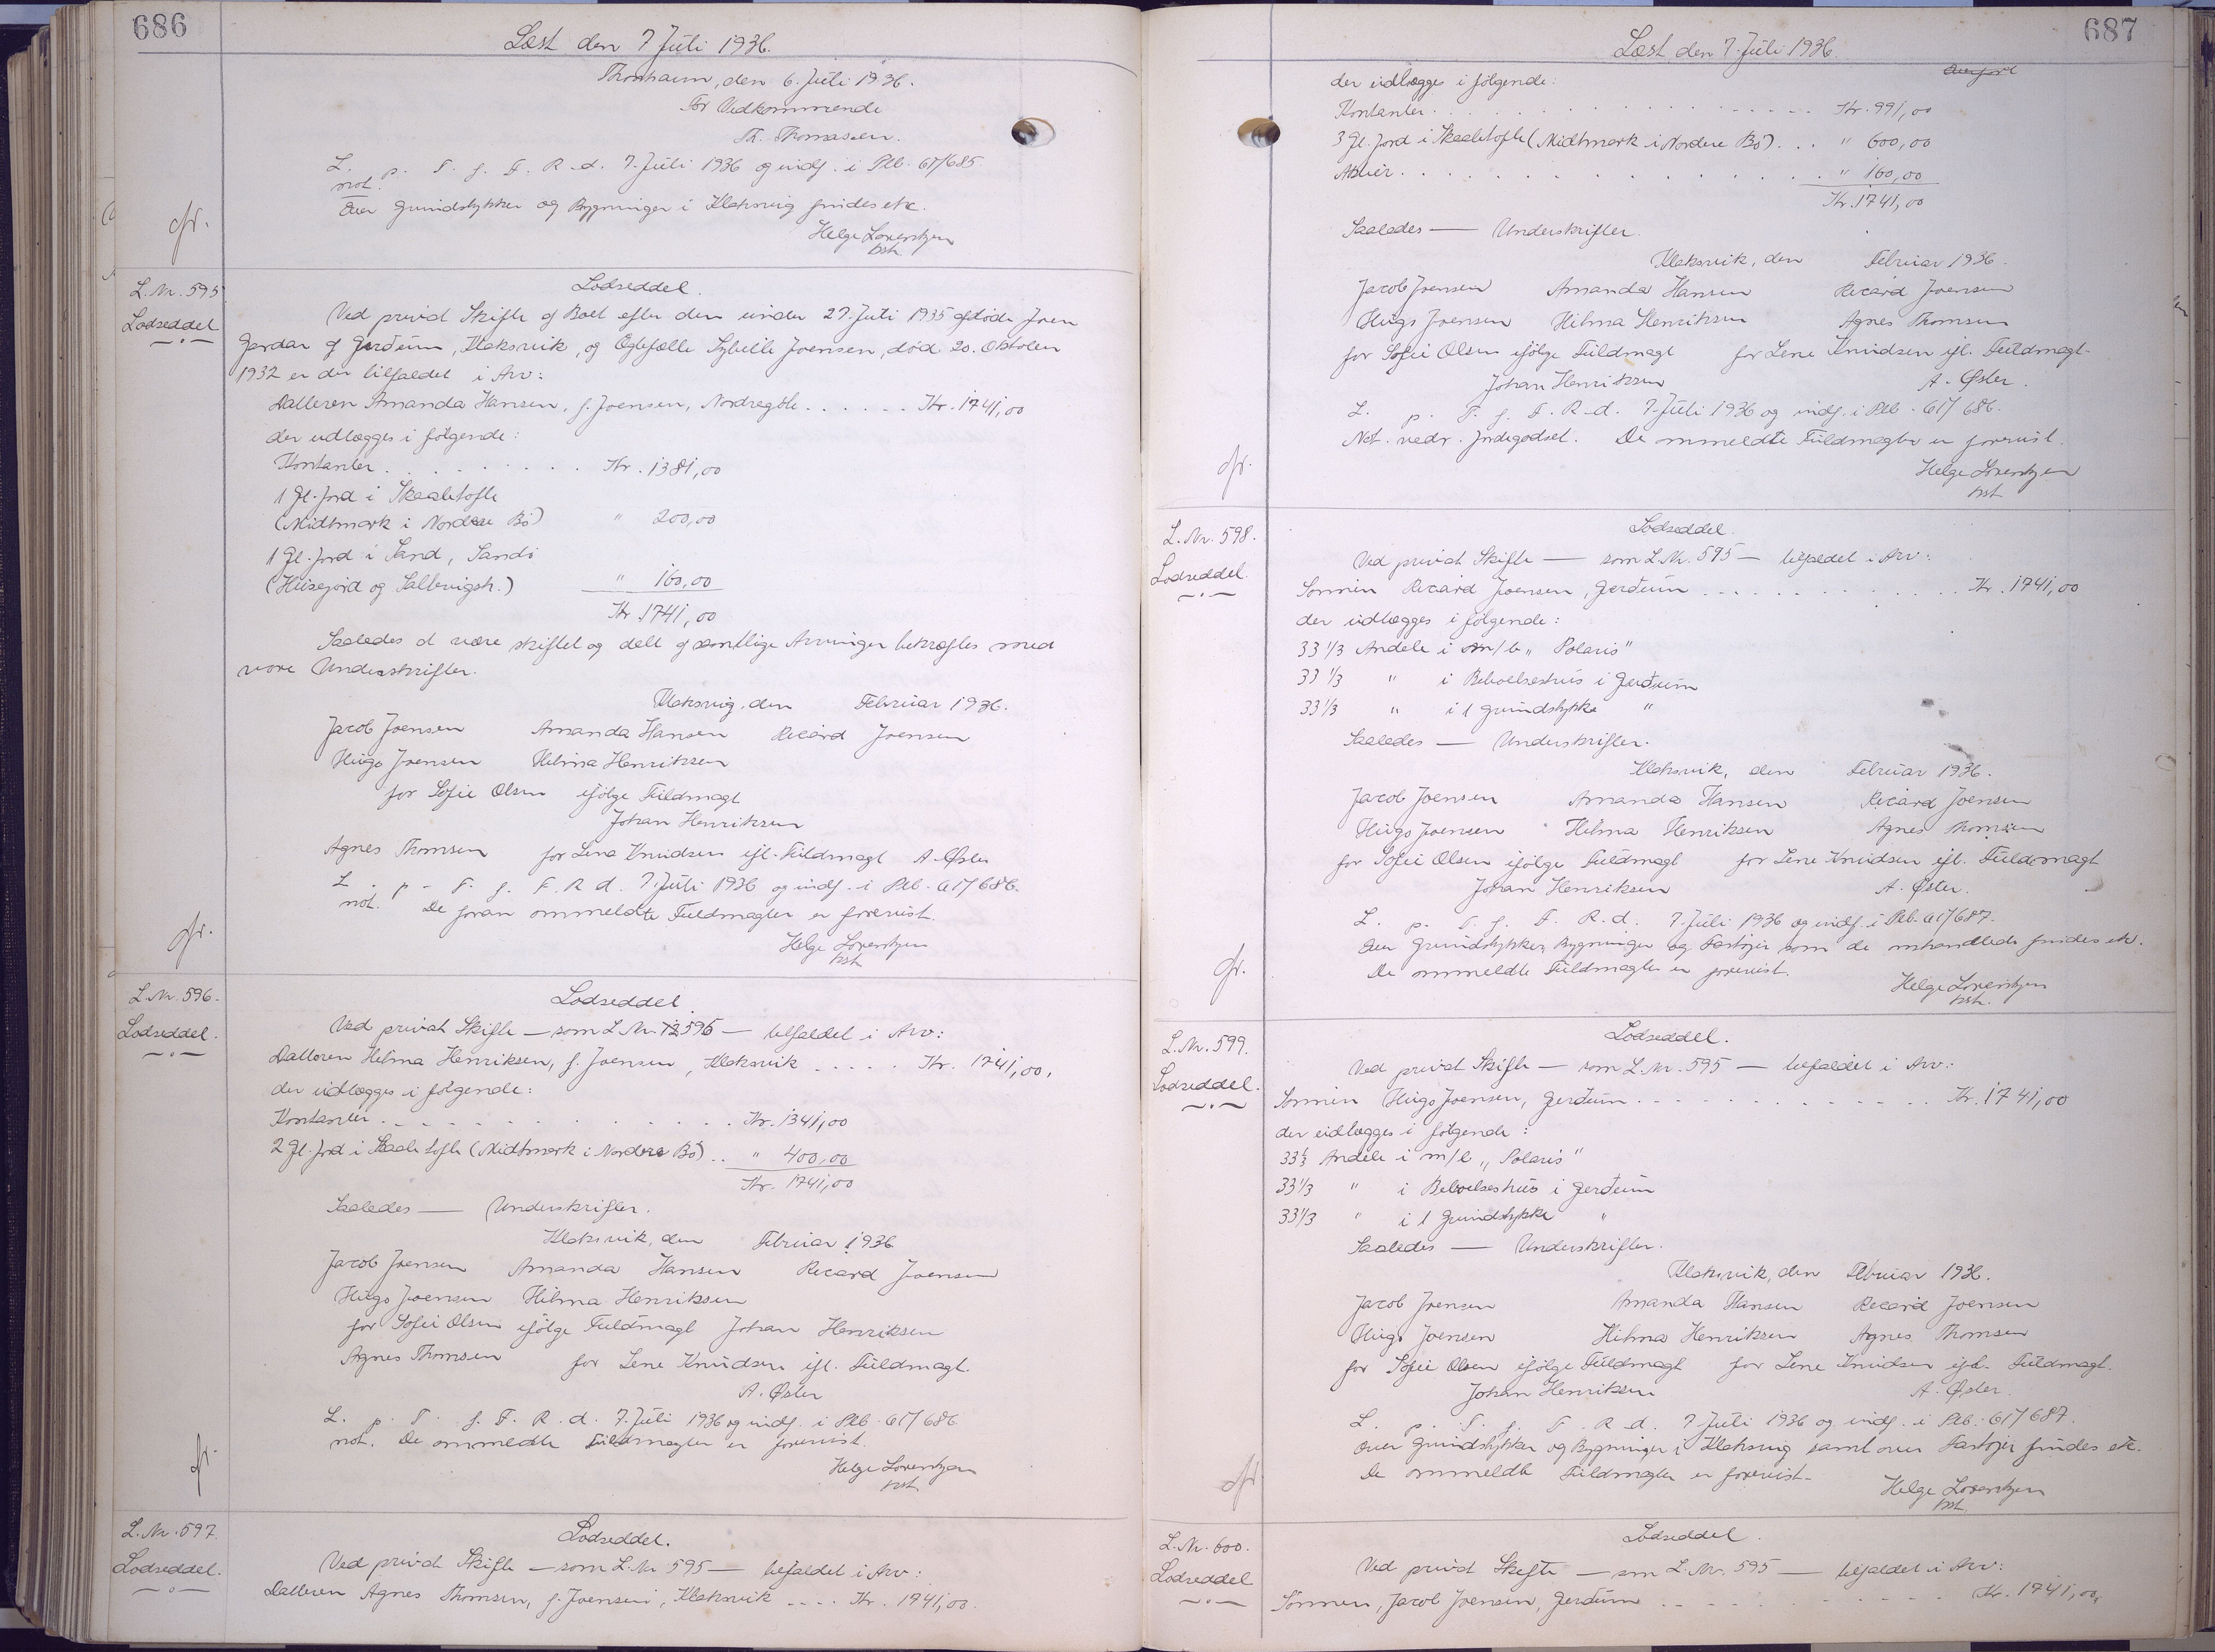 686
Læst den 7 Juli 1936.
Thorshavn, den 6. Juli 1936.
For Vedkommende
Th. Thomassen.
L. p. T. f. F. R. d. 7. Juli 1936 og indf. i Ptb. 61/685
not.
Over Grundstykker og Bygninger i Klaksvig findes etc.
Helge Lorentzen
hst.
L.Nr. 595
Lodseddel
Lodseddel.
Ved privat Skifte af Boet efter den under 27. Juli 1935 afdøde Joen
Gardar af Gerðum, Klaksvik, og Ægtefælle Sybille Joensen, død 20. Oktober
1932 er der tilfaldet i Arv:
Datteren Amanda Hansen, f. Joensen, Nordregöte . . . . . . Kr. 1741,00
der udlægges i følgende:
Kontanter . . . . . . . . . Kr. 1381,00
1 Gl. Jord i Skaaletofte
(Midtmark i Nordere Bö) " 200,00
1 Gl. Jord i Sand, Sandö
(Heisejord og Salthvigsh.) " 160,00
Kr. 1741,00
Saaledes at være skiftet og delt af samtlige Arvinger bekræftes med
vore Underskrifter.
Klaksvig, den Februar 1936.
Jacob Joensen Amanda Hansen Ricard Joensen
Hugo Joensen Hilma Henriksen
for Sofie Olsen ifølge Fuldmagt
Johan Henriksen
Agnes Thomsen for Lena Knudsen ifl. Fuldmagt A. Øster
L. p. T. f. F. R. d. 7. Juli 1936 og indf. i Ptb. 61/686.
not. De foran ommeldte Fuldmagter er forevist.
Helge Lorentzen
hst.
L.Nr. 596.
Lodseddel.
Lodseddel.
Ved privat Skifte — som L.Nr. 595 — tilfaldet i Arv:
Datteren Hilma Henriksen, f. Joensen, Klaksvik . . . . . Kr. 1741,00,
der udlægges i følgende:
Kontanter . . . . . . . . . . . . . . Kr. 1341,00
2 Gl. Jord i Skaaletofte (Midtmark i Nordere Bö) . . " 400,00
Kr. 1741,00
Saaledes — Underskrifter.
Klaksvik, den Februar 1936
Jacob Joensen Amanda Hansen Ricard Joensen
Hugo Joensen Hilma Henriksen
for Sofie Olsen ifølge Fuldmagt Johan Henriksen
Agnes Thomsen for Lene Knudsen ifl. Fuldmagt.
A. Øster
L. p. T. f. F. R. d. 7. Juli 1936 og indf. i Ptb. 61/686
not. De ommeldte Fuldmagter er forevist.
Helge Lorentzen
hst.
L.Nr. 597.
Lodseddel.
Lodseddel.
Ved privat Skifte — som L.Nr. 595 — tilfaldet i Arv:
Datteren Agnes Thomsen, f. Joensen, Klaksvik . . . . Kr. 1941,00.
687
Læst den 7. Juli 1936.
Overført
der udlægges i følgende:
Kontanter . . . . . . . . . . . . . . Kr. 991,00
3 Gl. Jord i Skaaletofte (Midtmark i Nordere Bö) . . . " 600,00
Aktier . . . . . . . . . . . . . . . " 160,00
Kr. 1741,00
Saaledes — Underskrifter.
Klaksvik, den Februar 1936.
Jacob Joensen Amanda Hansen Ricard Joensen
Hugo Joensen Hilma Henriksen Agnes Thomsen
for Sofie Olsen ifølge Fuldmagt for Lene Knudsen ifl. Fuldmagt.
Johan Henriksen A. Øster.
L. p. T. f. F. R. d. 7. Juli 1936 og indf. i Ptb. 61/686.
Not. vedr. Jordegodset. De ommeldte Fuldmagter er forevist.
Helge Lorentzen
hst.
L.Nr. 598.
Lodseddel.
Lodseddel.
Ved privat Skifte — som L.Nr. 595 — tilfaldet i Arv:
Sønnen Ricard Joensen, Gerðum . . . . . . . . . . . . . . Kr. 1741,00
der udlægges i følgende:
33 1/3 Andele i m/b „Polaris"
33 1/3 " i Beboelseshus i Gerðum
33 1/3 " i 1 Grundstykke "
Saaledes — Underskrifter.
Klaksvik, den Februar 1936.
Jacob Joensen Amanda Hansen Ricard Joensen
Hugo Joensen Hilma Henriksen Agnes Thomsen
for Sofie Olsen ifølge Fuldmagt for Lene Knudsen ifl. Fuldmagt
Johan Henriksen A. Øster.
L. p. T. f. F. R. d. 7. Juli 1936 og indf. i Ptb. 61/687.
Over Grundstykker, Bygninger og Fartøjer som de omhandlede findes etc.
De ommeldte Fuldmagter er forevist.
Helge Lorentzen
hst.
L.Nr. 599.
Lodseddel.
Lodseddel.
Ved privat Skifte — som L.Nr. 595 — tilfaldet i Arv:
Sønnen Hugo Joensen, Gerðum . . . . . . . . . . . . . Kr. 1741,00
der udlægges i følgende:
33 1/3 Andele i m/b „Polaris"
33 1/3 " i Beboelseshus i Gerðum
33 1/3 " i 1 Grundstykke "
Saaledes — Underskrifter.
Klaksvik, den Februar 1936.
Jacob Joensen Amanda Hansen Ricard Joensen
Hugo Joensen Hilma Henriksen Agnes Thomsen
for Sofie Olsen ifølge Fuldmagt for Lene Knudsen ifl. Fuldmagt.
Johan Henriksen A. Øster.
L. p. T. f. F. R. d. 7 Juli 1936 og indf. i Ptb. 61/687.
Over Grundstykker og Bygninger i Klaksvig samt over Fartøjer findes etc.
De ommeldte Fuldmagter er forevist.
Helge Lorentzen
hst.
L.Nr. 600.
Lodseddel
Lodseddel.
Ved privat Skifte — som L.Nr. 595 — tilfaldet i Arv:
Sønnen, Jacob Joensen, Gerðum . . . . . . . . . . . . Kr. 1741,00,